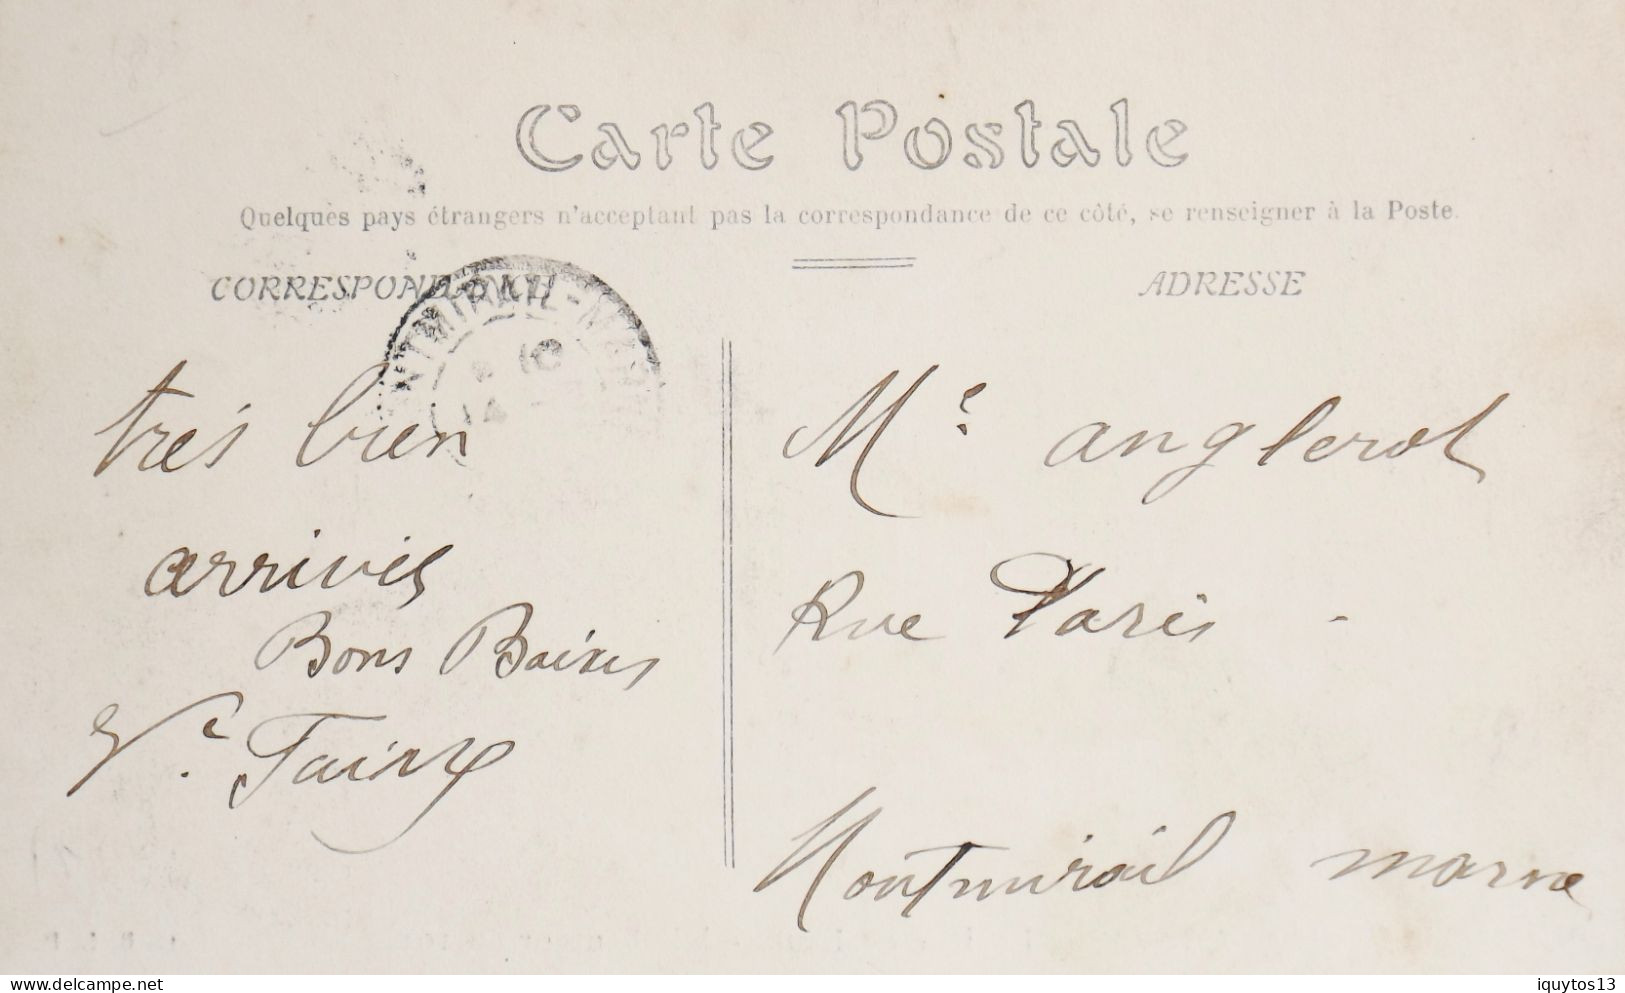 Carte Postale
Quelques pays étrangers n'acceptant pas la correspondance de ce côté, se renseigner à la Poste.
CORRESPONDANCE
ADRESSE
très bien
arrivés
Bons Baixes
Vᵉ
Mᵉ anglerot
Rue Paris
Montmirail marne
delcampe.net
iquytos13